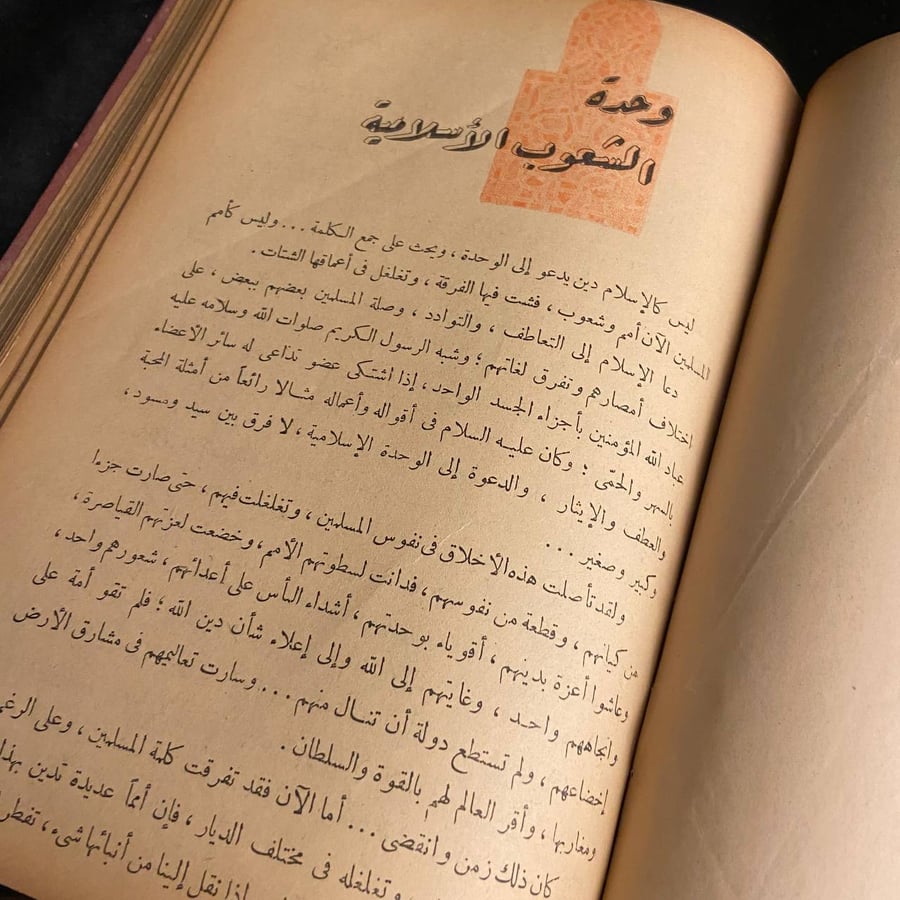 وحدة
الشعوب الأسلامية
ليس كالإسلام دين يدعو إلى الوحدة ، ويحث على جمع الكلمة ... وليس كأمم
المسلمين الآن أمم وشعوب ، فشت فيها الفرقة ، وتغلغل فى أعماقها الشتات .
دعا الإسلام إلى التعاطف ، والتوادد ، وصلة المسلمين بعضهم ببعض ، على
اختلاف أمصارهم وتفرق لغاتهم ؛ وشبه الرسول الكريم صلوات الله وسلامه عليه
عباد الله المؤمنين بأجزاء الجسد الواحد ، إذا اشتكى عضو تداعى له سائر الأعضاء
بالسهر والحمّى ؛ وكان عليه السلام فى أقواله وأعماله مثالا رائعاً من أمثلة المحبة
والعطف والإيثار ، والدعوة إلى الوحدة الإسلامية ، لا فرق بين سيد ومسود ،
وكبير وصغير ...
ولقد تأصلت هذه الأخلاق فى نفوس المسلمين ، وتغلغلت فيهم ، حتى صارت جزءا
من كيانهم ، وقطعة من نفوسهم ، فدانت لسطوتهم الأمم ، وخضعت لعزتهم القياصرة ،
وعاشوا أعزة بدينهم ، أقوياء بوحدتهم ، أشداء البأس على أعدائهم ، شعورهم واحد ،
واتجاههم واحد ، وغايتهم إلى الله وإلى إعلاء شأن دين الله ؛ فلم تقو أمة على
إخضاعهم ، ولم تستطع دولة أن تنال منهم ... وسارت تعاليمهم فى مشارق الأرض
ومغاربها ، وأقر العالم لهم بالقوة والسلطان .
كان ذلك زمن وانقضى ... أما الآن فقد تفرقت كلمة المسلمين ، وعلى الرغم
وتغلغله فى مختلف الديار ، فإن أمماً عديدة تدين بهذا
إذا نقل إلينا من أنبائها شىء ، تفطر